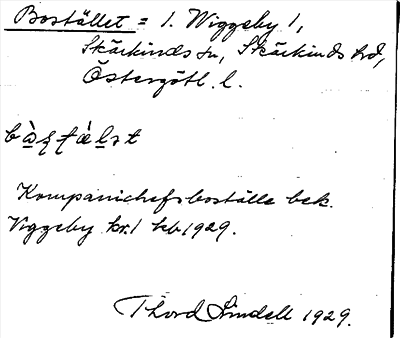 Bostället = 1. Wiggeby 1,
Skärkinds sn, Skärkinds hd,
Östergötl. l.
Kompanichefsboställe bek.
Viggeby kr. 1 hb 1929.
Thord Lindell 1929.